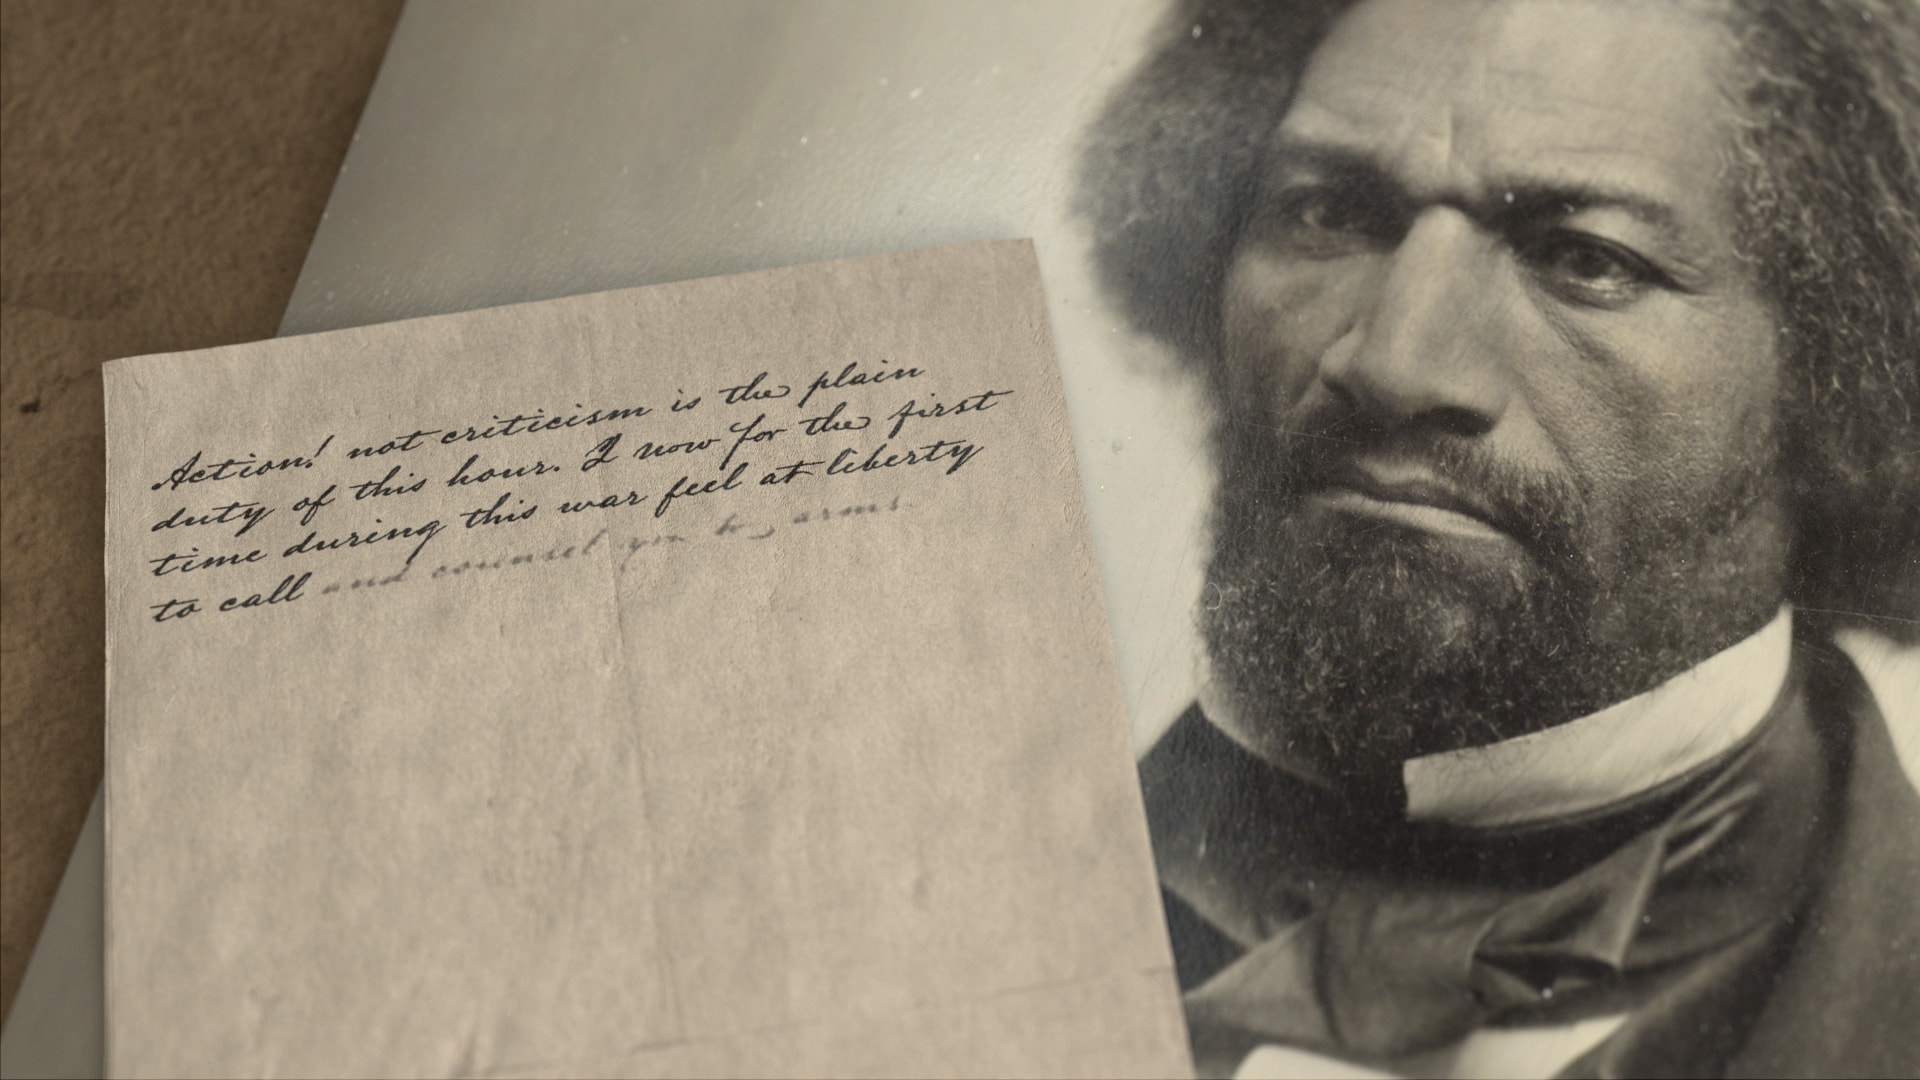 Action! not criticism is the plain
duty of this hour. I now for the first
time during this war feel at liberty
to call and counsel you to arms.